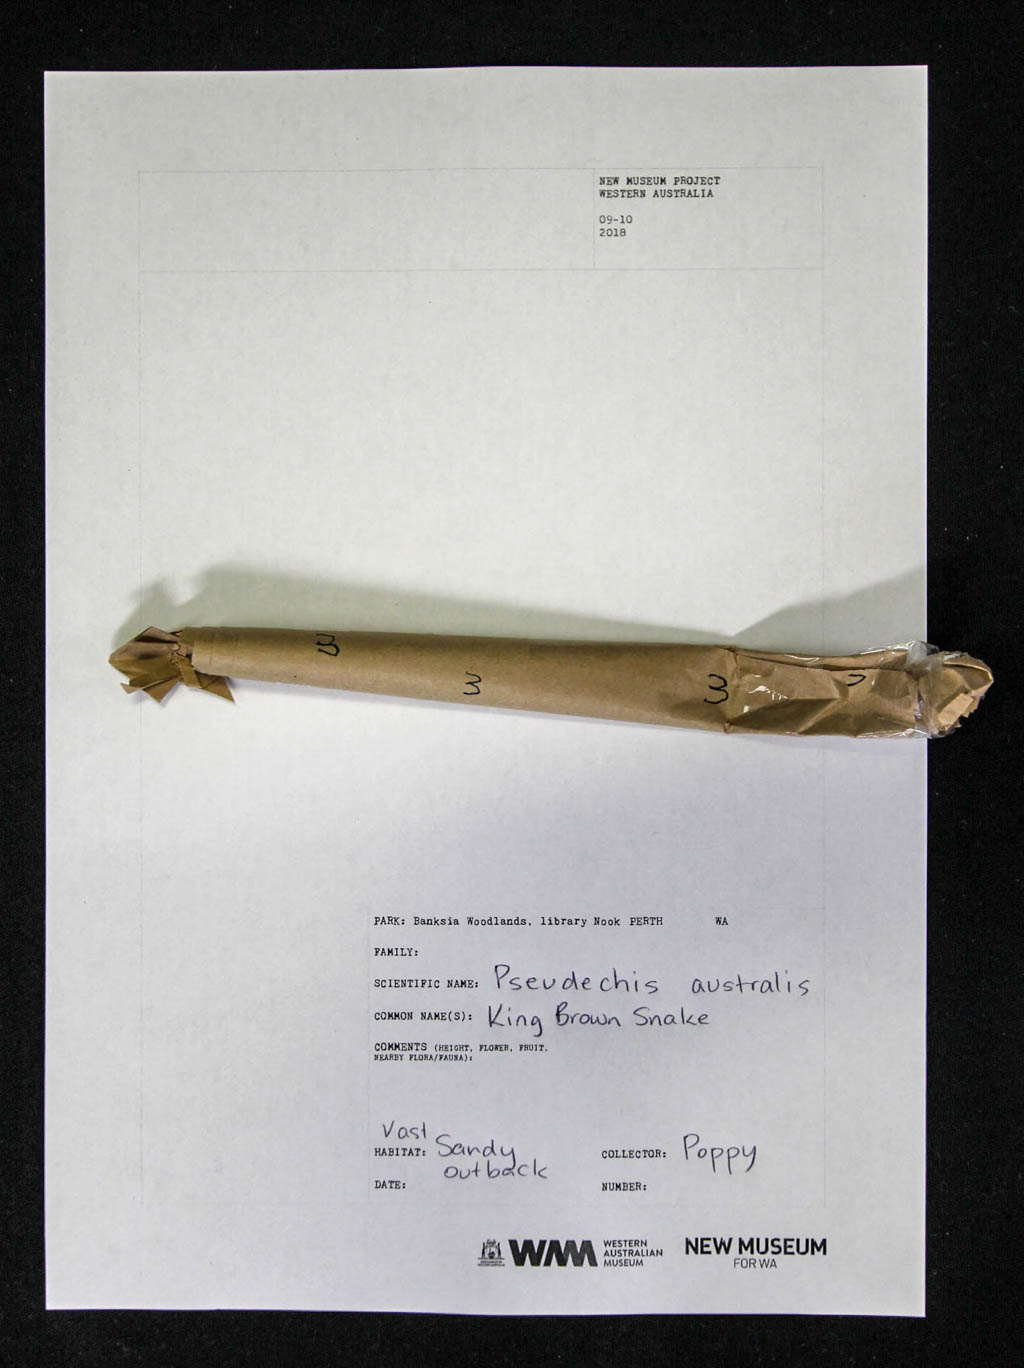 NEW MUSEUM PROJECT
WESTERN AUSTRALIA
09-10
2018
PARK: Banksia Woodlands, library Nook PERTH WA
FAMILY:
SCIENTIFIC NAME: Pseudechis australis
COMMON NAME(S): King Brown Snake
COMMENTS (HEIGHT, FLOWER, FRUIT,
NEARBY FLORA/FAUNA):
Vast
HABITAT: Sandy
outback
COLLECTOR: Poppy
DATE:
NUMBER:
WAM
WESTERN
AUSTRALIAN
MUSEUM
NEW MUSEUM
FOR WA